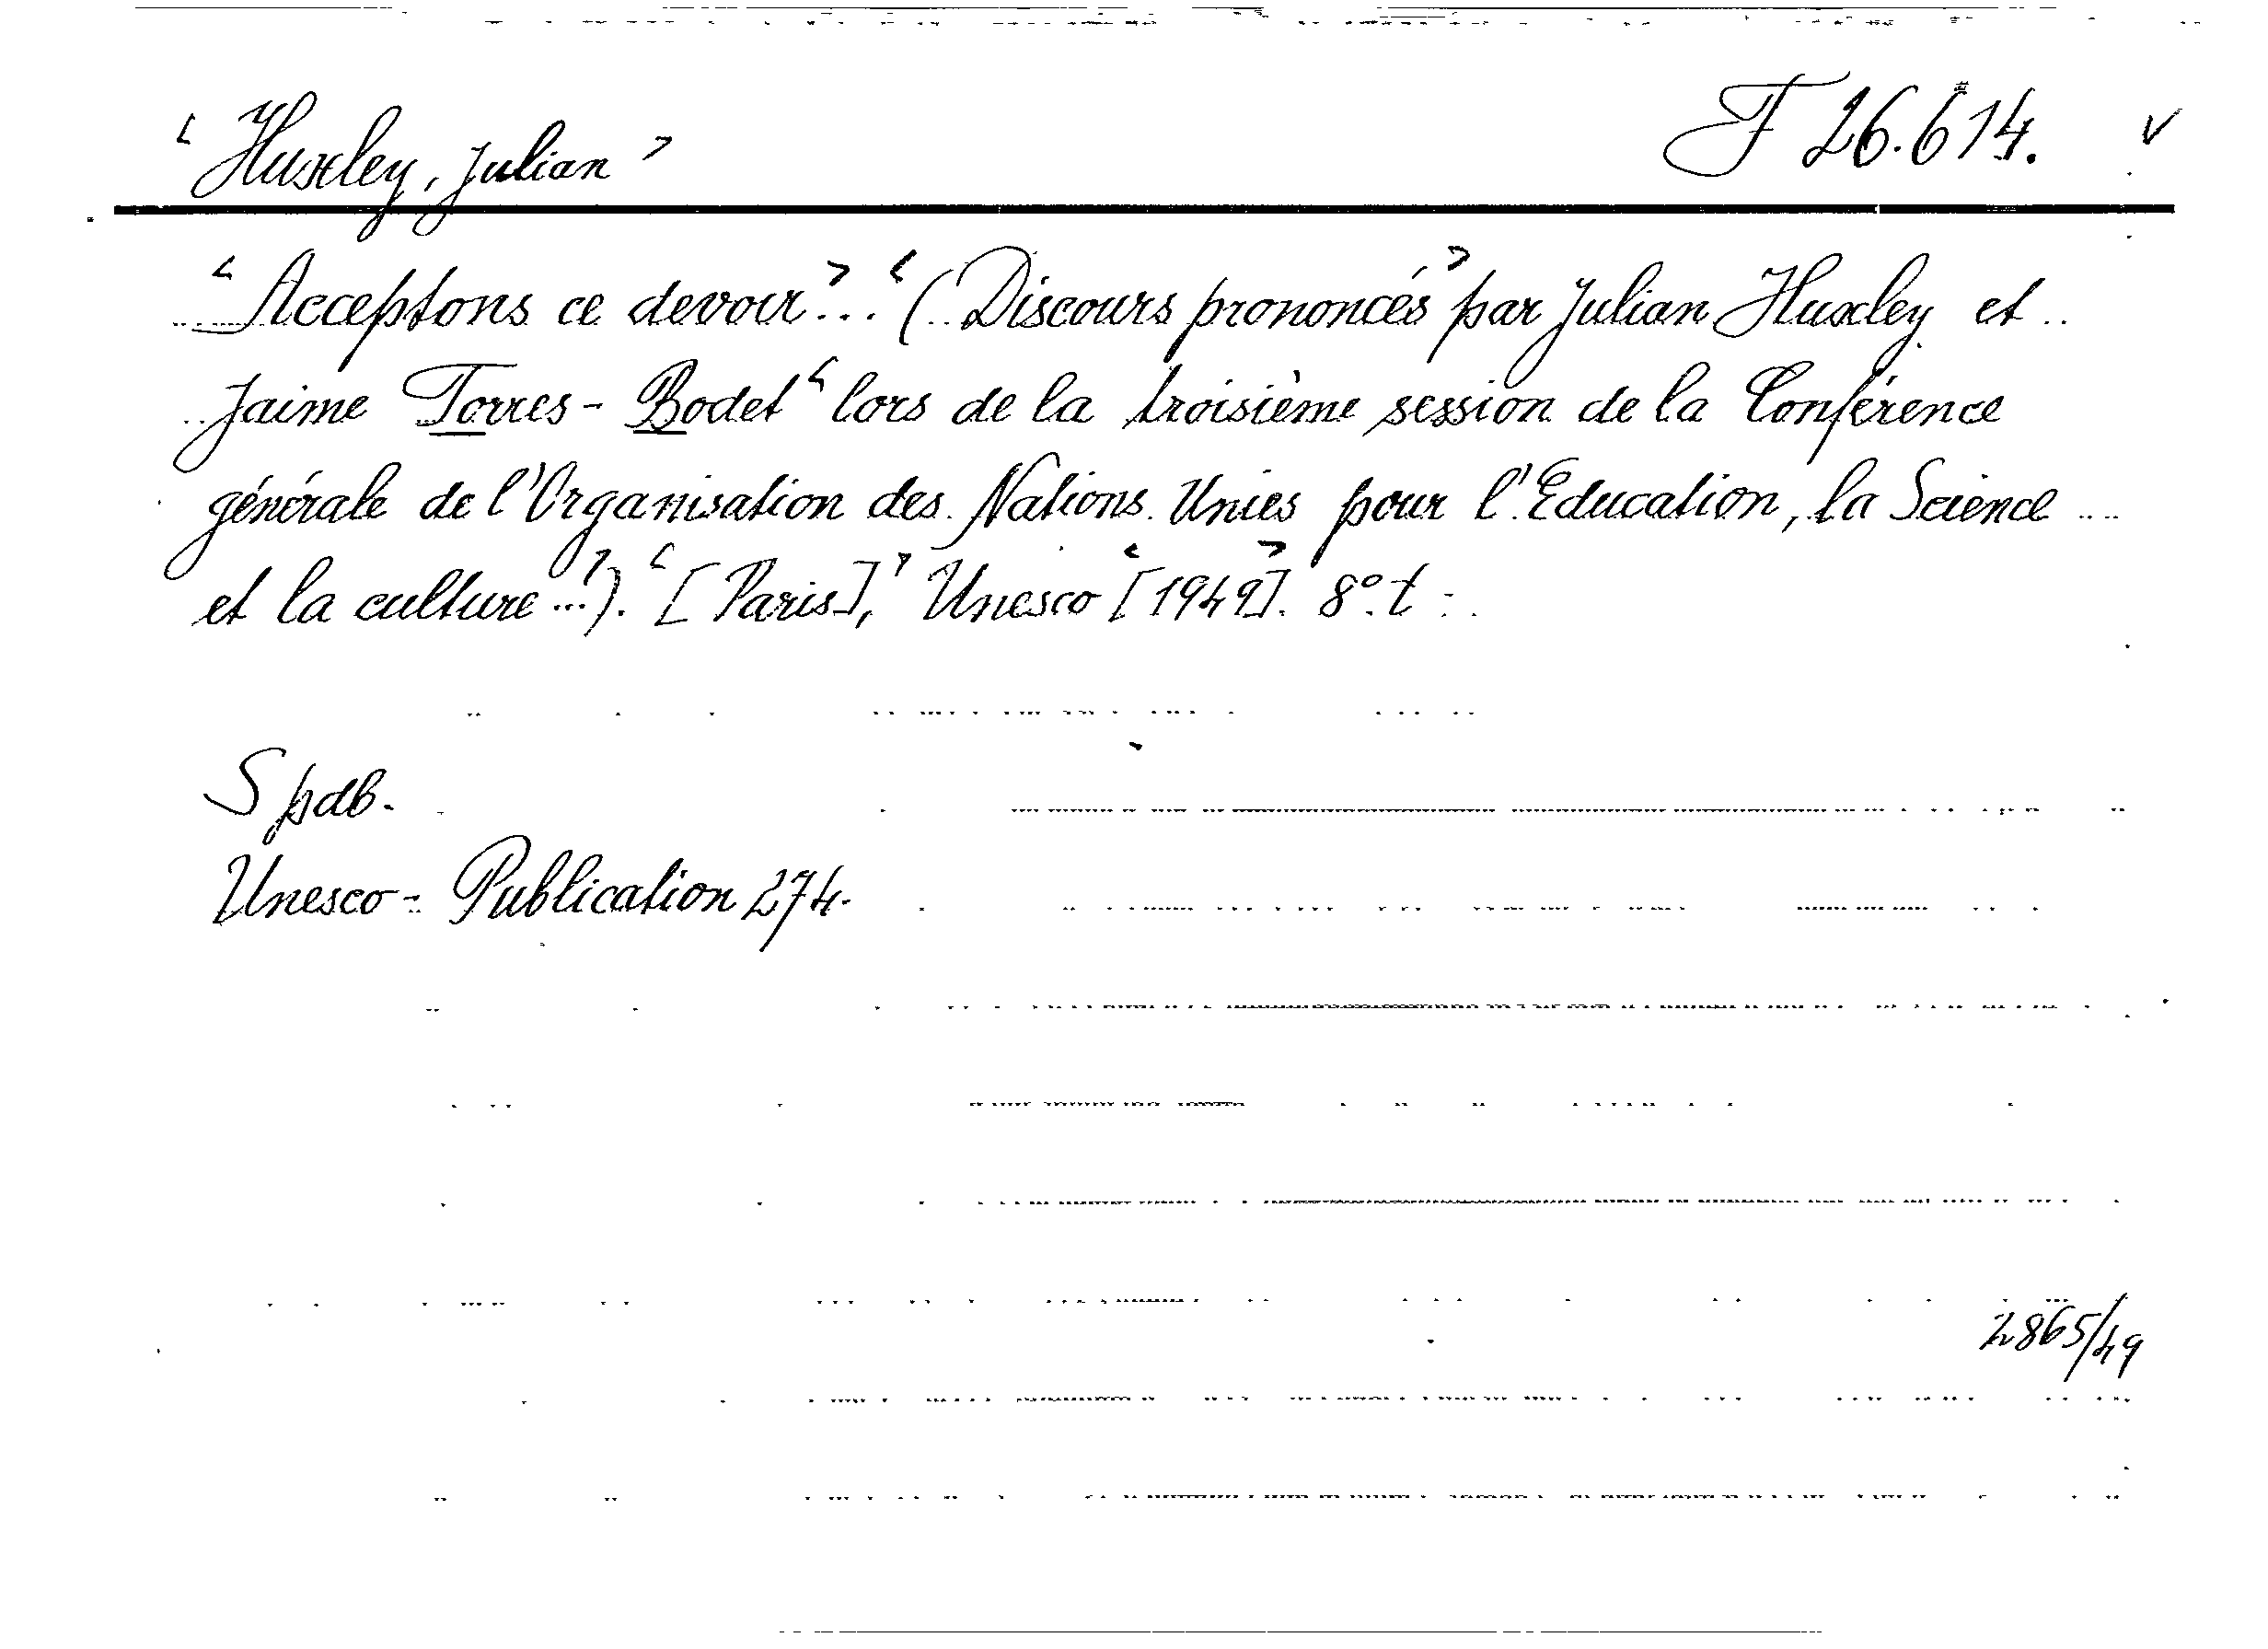 <Huxley, Julian> F 26.614. v
<Acceptons ce devoir>... <(Discours prononcés> par Julian Huxley et
Jaime Torres-Bodet <lors de la troisième session de la Conférence
générale de l'Organisation des Nations Unies pour l'Education, la Science
et la culture...>). <[Paris],> Unesco <[1949]>. 8°. t
Spdb.
Unesco-Publication 274.
2865/49